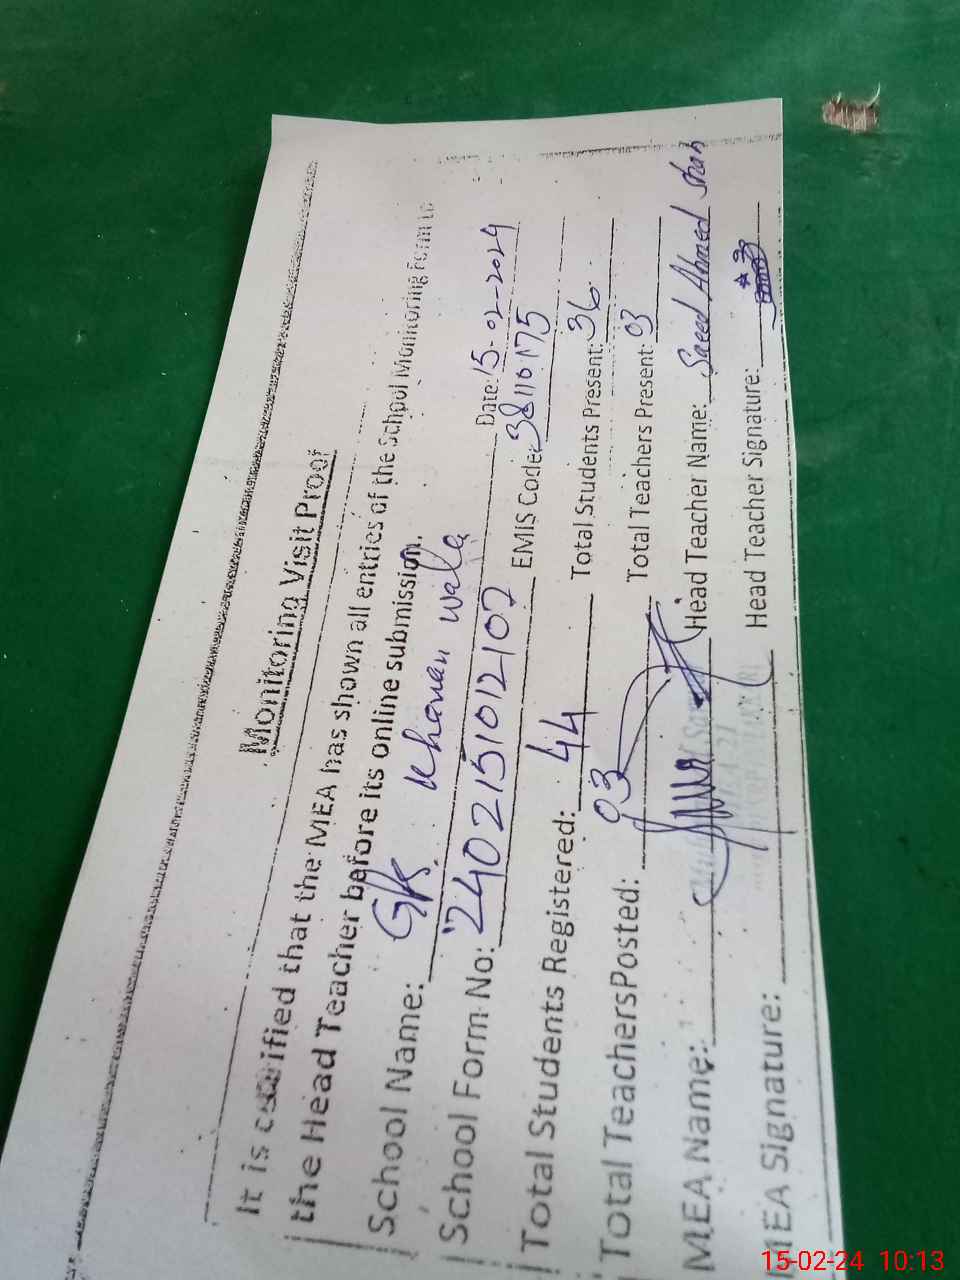 Monitoring Visit Proof
It is certified that the MEA has shown all entries of the School Monitoring Form to
the Head Teacher before its online submission.
School Name: GPS. Khanan wala Date: 15-02-2024
School Form No: 2402151012102 EMIS Code: 38110175
Total Students Registered: 44 Total Students Present: 36
Total TeachersPosted: 03 Total Teachers Present: 03
MEA Name: Head Teacher Name: Saeed Ahmed Shah
MEA Signature: Head Teacher Signature:
15-02-24 10:13